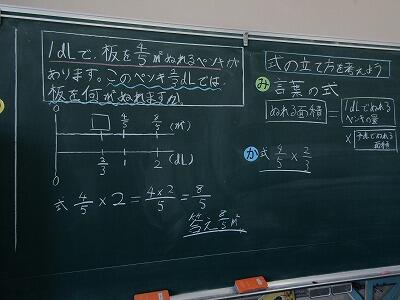 1dLで、板を4/5㎡ぬれるペンキが
あります。このペンキ2/3dLでは、
板を何㎡ぬれますか。
0 □ 4/5 8/5 (㎡)
0 2/3 1 2 (dL)
式 4/5×2=4×2/5=8/5
答え 8/5㎡
式の立て方を考えよう
み 言葉の式
ぬれる面積 = 1dLでぬれる
ペンキの量
×
面積
か 式 4/5×2/3